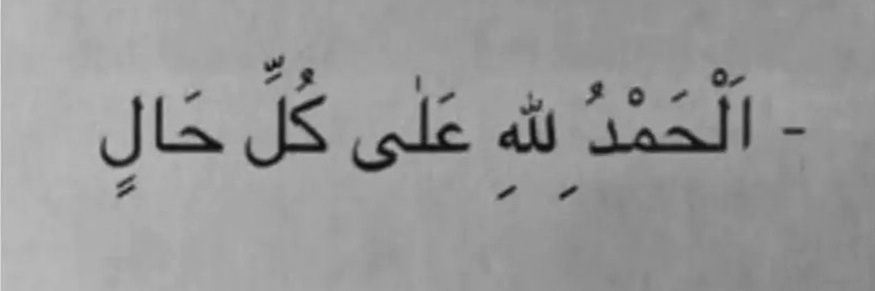 - اَلْحَمْدُ لِلهِ عَلٰى كُلِّ حَالٍ